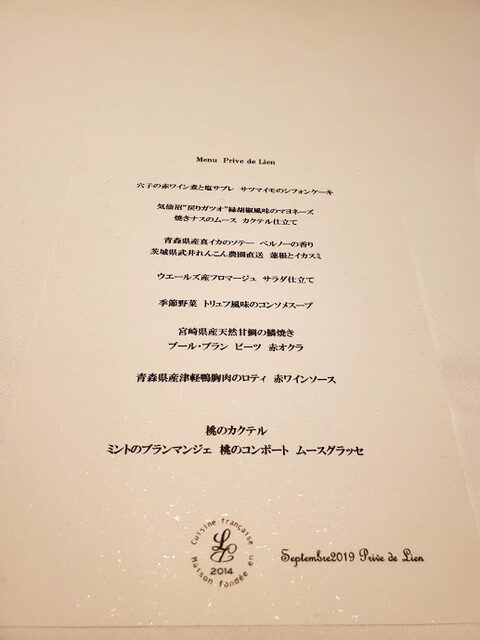 Menu Prive de Lien
穴子の赤ワイン煮と塩サブレ サツマイモのシフォンケーキ
気仙沼"戻りガツオ"緑胡椒風味のマヨネーズ
焼きナスのムース カクテル仕立て
青森県産真イカのソテー ペルノーの香り
茨城県武井れんこん農園直送 蓮根とイカスミ
ウエールズ産フロマージュ サラダ仕立て
季節野菜 トリュフ風味のコンソメスープ
宮崎県産天然甘鯛の鱗焼き
ブール・ブラン ビーツ 赤オクラ
青森県産津軽鴨胸肉のロティ 赤ワインソース
桃のカクテル
ミントのブランマンジェ 桃のコンポート ムースグラッセ
Cuisine française
2014
Maison fondée en
Septembre2019 Prive de Lien